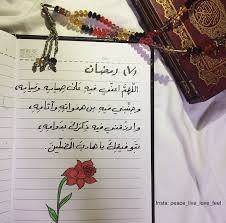 ٧ رمضان
اللهم اعني فيه على صيامه وقيامه،
وجنبني فيه من هفواته وآثامه،
وارزقني فيه ذكرك بدوامه،
بتوفيقك يا هادي المضلين.
Insta: peace_live_love_feel